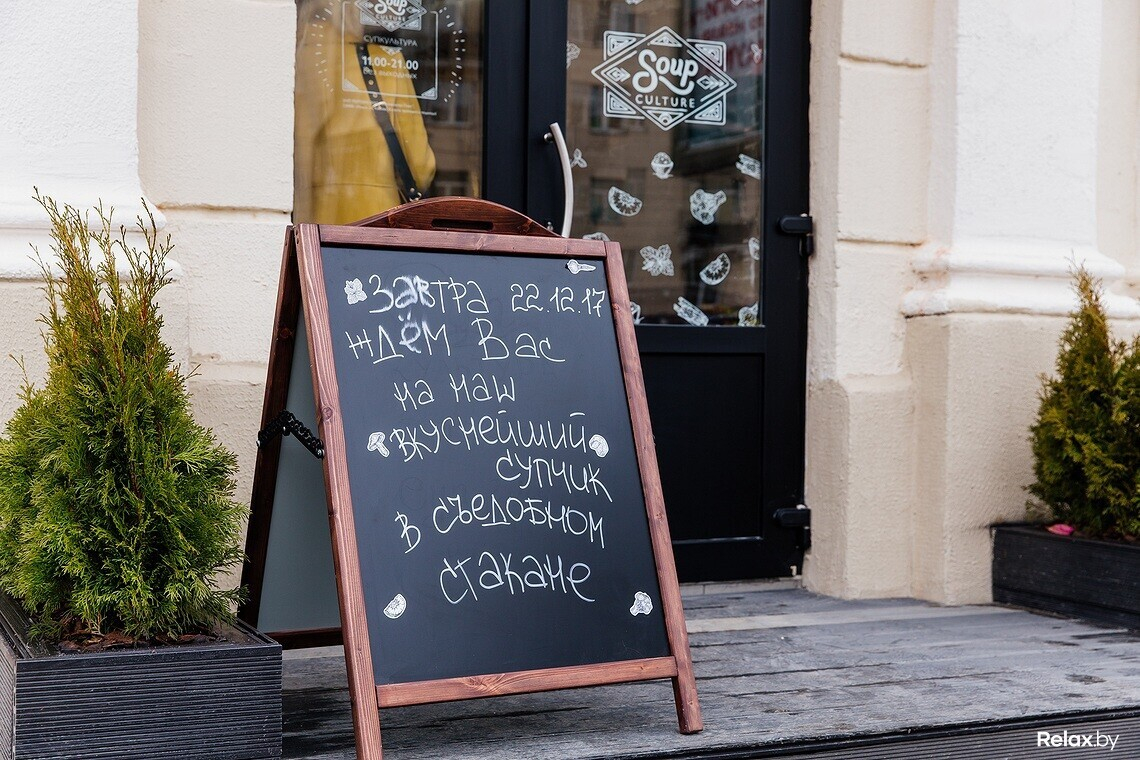 Soup
CULTURE
СУПКУЛЬТУРА
11.00-21.00
Soup
CULTURE
Завтра 22.12.17
ждём Вас
на наш
вкуснейший
супчик
в съедобном
стакане
Relax.by